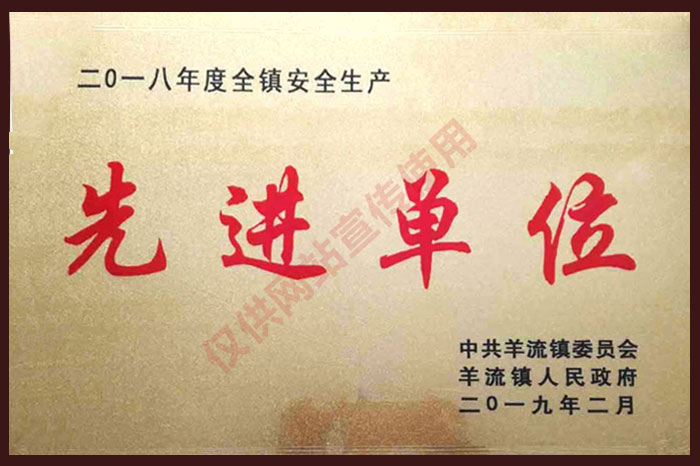 二〇一八年度全镇安全生产
先进单位
仅供网站宣传使用
中共羊流镇委员会
羊流镇人民政府
二〇一九年二月